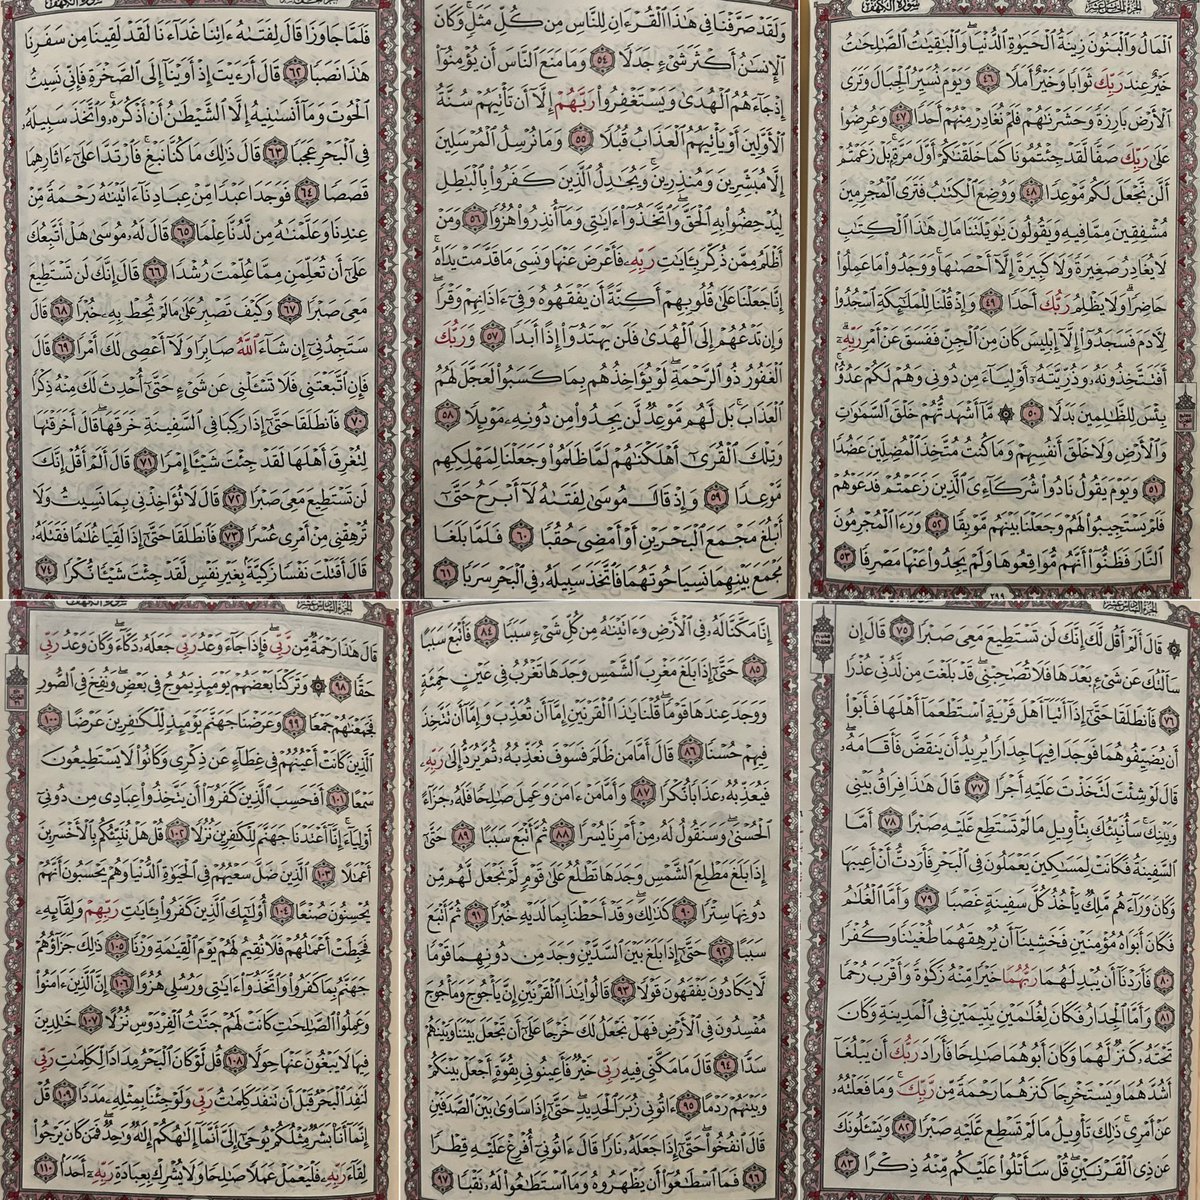 سورة الكهف
المال والبنون زينة الحيوة الدنيا والبقيت الصلحت
خير عند ربك ثوابا وخير أملا ٤٦ ويوم نسير الجبال وترى
الأرض بارزة وحشرنهم فلم نغادر منهم أحدا ٤٧ وعرضوا
على ربك صفا لقد جئتمونا كما خلقنكم أول مرة بل زعمتم
ألن نجعل لكم موعدا ٤٨ ووضع الكتب فترى المجرمين
مشفقين مما فيه ويقولون يويلتنا مال هذا الكتب
لا يغادر صغيرة ولا كبيرة إلا أحصىها ووجدوا ما عملوا
حاضرا ولا يظلم ربك أحدا ٤٩ وإذ قلنا للملئكة اسجدوا
لأدم فسجدوا إلا إبليس كان من الجن ففسق عن أمر ربه
أفتتخذونه وذريته أولياء من دونى وهم لكم عدو
بئس للظلمين بدلا ٥٠ ۞ ما أشهدتهم خلق السموت
والأرض ولا خلق أنفسهم وما كنت متخذ المضلين عضدا
٥١ ويوم يقول نادوا شركاءى الذين زعمتم فدعوهم
فلم يستجيبوا لهم وجعلنا بينهم موبقا ٥٢ ورءا المجرمون
النار فظنوا أنهم مواقعوها ولم يجدوا عنها مصرفا ٥٣
٢٩٩
ولقد صرفنا فى هذا القرءان للناس من كل مثل وكان
الإنسن أكثر شىء جدلا ٥٤ وما منع الناس أن يؤمنوا
إذ جاءهم الهدى ويستغفروا ربهم إلا أن تأتيهم سنة
الأولين أو يأتيهم العذاب قبلا ٥٥ وما نرسل المرسلين
إلا مبشرين ومنذرين ويجدل الذين كفروا بالبطل
ليدحضوا به الحق واتخذوا ءايتى وما أنذروا هزوا ٥٦ ومن
أظلم ممن ذكر بءايت ربه فأعرض عنها ونسى ما قدمت يداه
إنا جعلنا على قلوبهم أكنة أن يفقهوه وفى ءاذانهم وقرا
وإن تدعهم إلى الهدى فلن يهتدوا إذا أبدا ٥٧ وربك
الغفور ذو الرحمة لو يؤاخذهم بما كسبوا لعجل لهم
العذاب بل لهم موعد لن يجدوا من دونه موئلا ٥٨
وتلك القرى أهلكنهم لما ظلموا وجعلنا لمهلكهم
موعدا ٥٩ وإذ قال موسى لفتىه لا أبرح حتى
أبلغ مجمع البحرين أو أمضى حقبا ٦٠ فلما بلغا
مجمع بينهما نسيا حوتهما فاتخذ سبيله فى البحر سربا ٦١
سورة الكهف
فلما جاوزا قال لفتىه ءاتنا غداءنا لقد لقينا من سفرنا
هذا نصبا ٦٢ قال أرءيت إذ أوينا إلى الصخرة فإنى نسيت
الحوت وما أنسىنيه إلا الشيطن أن أذكره واتخذ سبيله
فى البحر عجبا ٦٣ قال ذلك ما كنا نبغ فارتدا على ءاثارهما
قصصا ٦٤ فوجدا عبدا من عبادنا ءاتينه رحمة من
عندنا وعلمنه من لدنا علما ٦٥ قال له موسى هل أتبعك
على أن تعلمن مما علمت رشدا ٦٦ قال إنك لن تستطيع
معى صبرا ٦٧ وكيف تصبر على ما لم تحط به خبرا ٦٨ قال
ستجدنى إن شاء الله صابرا ولا أعصى لك أمرا ٦٩ قال
فإن اتبعتنى فلا تسئلنى عن شىء حتى أحدث لك منه ذكرا
٧٠ فانطلقا حتى إذا ركبا فى السفينة خرقها قال أخرقتها
لتغرق أهلها لقد جئت شيئا إمرا ٧١ قال ألم أقل إنك
لن تستطيع معى صبرا ٧٢ قال لا تؤاخذنى بما نسيت ولا
ترهقنى من أمرى عسرا ٧٣ فانطلقا حتى إذا لقيا غلما فقتله
قال أقتلت نفسا زكية بغير نفس لقد جئت شيئا نكرا ٧٤
۞ قال ألم أقل لك إنك لن تستطيع معى صبرا ٧٥ قال إن
سألتك عن شىء بعدها فلا تصحبنى قد بلغت من لدنى عذرا
٧٦ فانطلقا حتى إذا أتيا أهل قرية استطعما أهلها فأبوا
أن يضيفوهما فوجدا فيها جدارا يريد أن ينقض فأقامه
قال لو شئت لتخذت عليه أجرا ٧٧ قال هذا فراق بينى
وبينك سأنبئك بتأويل ما لم تستطع عليه صبرا ٧٨ أما
السفينة فكانت لمسكين يعملون فى البحر فأردت أن أعيبها
وكان وراءهم ملك يأخذ كل سفينة غصبا ٧٩ وأما الغلم
فكان أبواه مؤمنين فخشينا أن يرهقهما طغينا وكفرا
٨٠ فأردنا أن يبدلهما ربهما خيرا منه زكوة وأقرب رحما
٨١ وأما الجدار فكان لغلمين يتيمين فى المدينة وكان
تحته كنز لهما وكان أبوهما صلحا فأراد ربك أن يبلغا
أشدهما ويستخرجا كنزهما رحمة من ربك وما فعلته
عن أمرى ذلك تأويل ما لم تسطع عليه صبرا ٨٢ ويسئلونك
عن ذى القرنين قل سأتلوا عليكم منه ذكرا ٨٣
إنا مكنا له فى الأرض وءاتينه من كل شىء سببا ٨٤ فأتبع سببا
٨٥ حتى إذا بلغ مغرب الشمس وجدها تغرب فى عين حمئة
ووجد عندها قوما قلنا يذا القرنين إما أن تعذب وإما أن تتخذ
فيهم حسنا ٨٦ قال أما من ظلم فسوف نعذبه ثم يرد إلى ربه
فيعذبه عذابا نكرا ٨٧ وأما من ءامن وعمل صلحا فله جزاء
الحسنى وسنقول له من أمرنا يسرا ٨٨ ثم أتبع سببا ٨٩ حتى
إذا بلغ مطلع الشمس وجدها تطلع على قوم لم نجعل لهم من
دونها سترا ٩٠ كذلك وقد أحطنا بما لديه خبرا ٩١ ثم أتبع
سببا ٩٢ حتى إذا بلغ بين السدين وجد من دونهما قوما
لا يكادون يفقهون قولا ٩٣ قالوا يذا القرنين إن يأجوج ومأجوج
مفسدون فى الأرض فهل نجعل لك خرجا على أن تجعل بيننا وبينهم
سدا ٩٤ قال ما مكنى فيه ربى خير فأعينونى بقوة أجعل بينكم
وبينهم ردما ٩٥ ءاتونى زبر الحديد حتى إذا ساوى بين الصدفين
قال انفخوا حتى إذا جعله نارا قال ءاتونى أفرغ عليه قطرا
٩٦ فما اسطعوا أن يظهروه وما استطعوا له نقبا ٩٧
سورة الكهف
قال هذا رحمة من ربى فإذا جاء وعد ربى جعله دكاء وكان وعد ربى
حقا ٩٨ ۞ وتركنا بعضهم يومئذ يموج فى بعض ونفخ فى الصور
فجمعنهم جمعا ٩٩ وعرضنا جهنم يومئذ للكفرين عرضا ١٠٠
الذين كانت أعينهم فى غطاء عن ذكرى وكانوا لا يستطيعون
سمعا ١٠١ أفحسب الذين كفروا أن يتخذوا عبادى من دونى
أولياء إنا أعتدنا جهنم للكفرين نزلا ١٠٢ قل هل ننبئكم بالأخسرين
أعملا ١٠٣ الذين ضل سعيهم فى الحيوة الدنيا وهم يحسبون أنهم
يحسنون صنعا ١٠٤ أولئك الذين كفروا بءايت ربهم ولقائه
فحبطت أعملهم فلا نقيم لهم يوم القيمة وزنا ١٠٥ ذلك جزاؤهم
جهنم بما كفروا واتخذوا ءايتى ورسلى هزوا ١٠٦ إن الذين ءامنوا
وعملوا الصلحت كانت لهم جنت الفردوس نزلا ١٠٧ خلدين
فيها لا يبغون عنها حولا ١٠٨ قل لو كان البحر مدادا لكلمت ربى
لنفد البحر قبل أن تنفد كلمت ربى ولو جئنا بمثله مددا ١٠٩ قل
إنما أنا بشر مثلكم يوحى إلى أنما إلهكم إله وحد فمن كان يرجوا
لقاء ربه فليعمل عملا صلحا ولا يشرك بعبادة ربه أحدا ١١٠